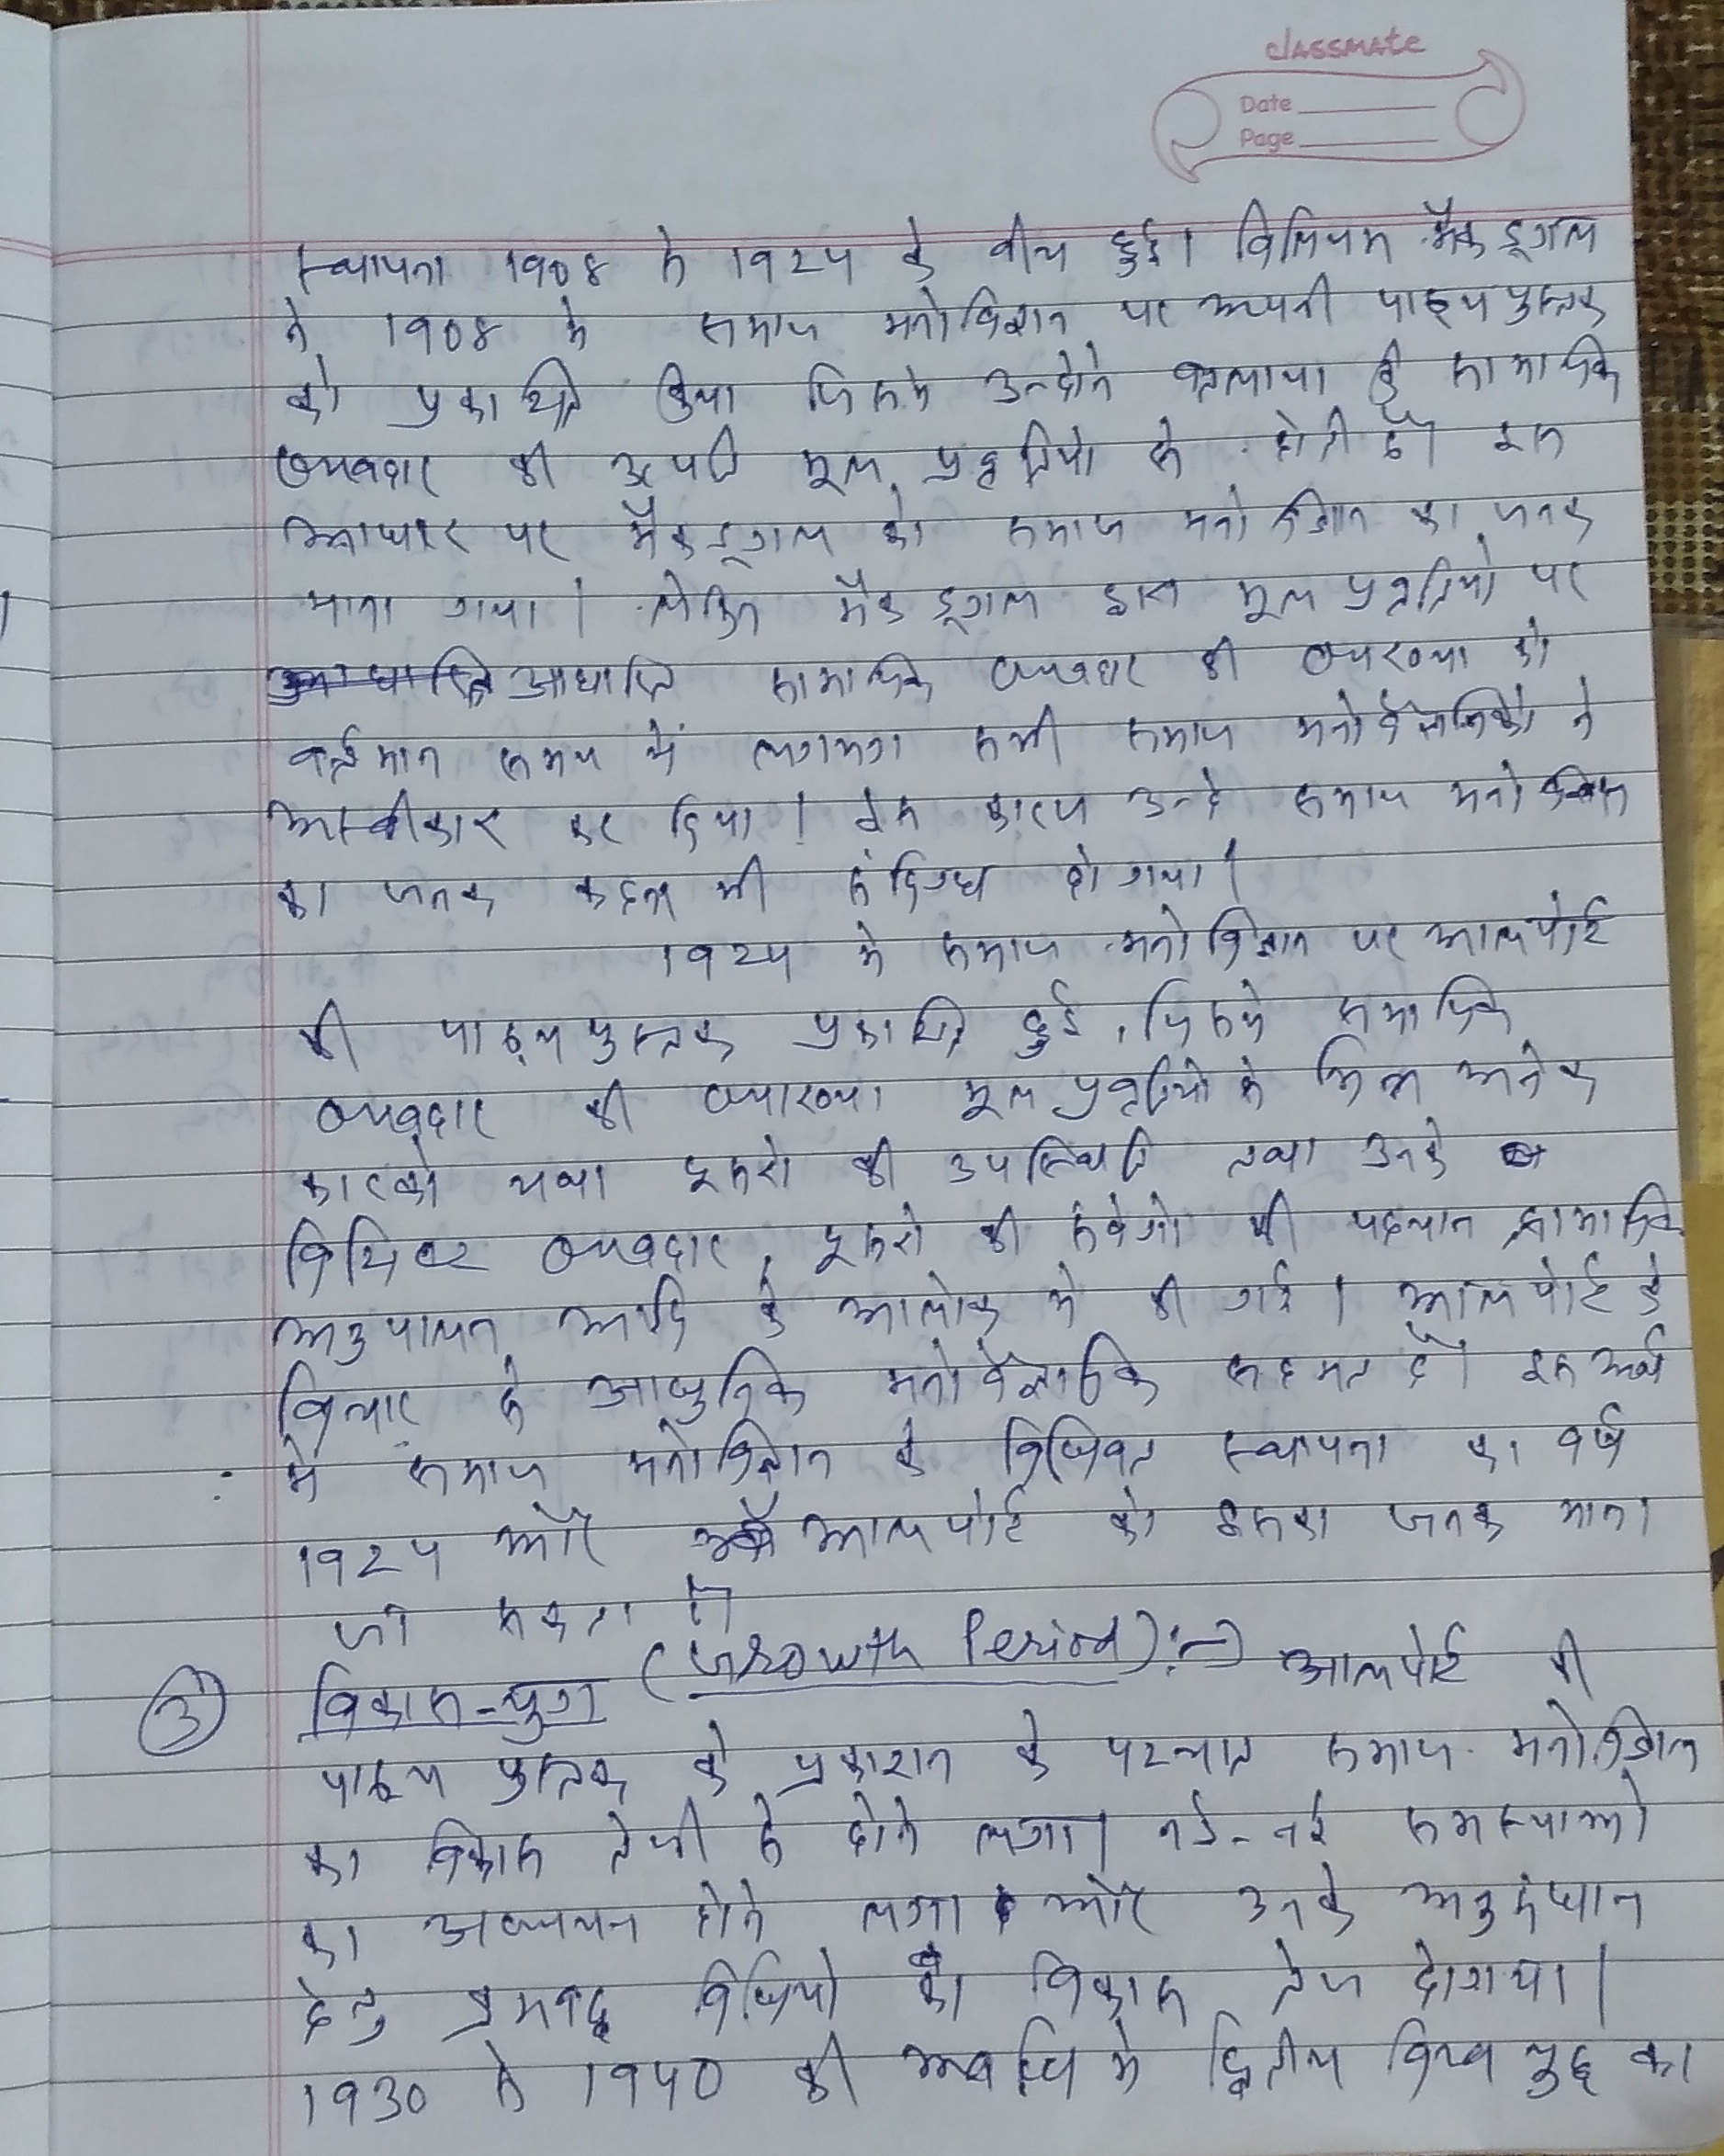 classmate
Date
Page
स्थापना 1908 से 1924 के बीच हुई। विलियम मैकडूगल
ने 1908 मे समाज मनोविज्ञान पर अपनी पाठ्यपुस्तक
को प्रकाशित किया जिसमे उन्होने बतलाया कि सामाजिक
व्यवहार की उत्पत्ति मूल प्रवृत्तियो से होती है। इस
आधार पर मैकडूगल को समाज मनोविज्ञान का जनक
माना गया। लेकिन मैकडूगल द्वारा मूल प्रवृत्तियो पर
आधारित सामाजिक व्यवहार की व्याख्या को
वर्तमान समय में लगभग सभी समाज मनोवैज्ञानिको ने
अस्वीकार कर दिया। इस कारण उन्हे समाज मनोविज्ञान
का जनक कहना भी संदिग्ध हो गया।
1924 मे समाज मनोविज्ञान पर आलपोर्ट
की पाठ्यपुस्तक प्रकाशित हुई, जिसमे सामाजिक
व्यवहार की व्याख्या मूल प्रवृत्तियो से भिन्न अनेक
कारको यथा दूसरो की उपस्थिति तथा उनके
विशिष्ट व्यवहार, दूसरो की संवेगो की पहचान सामाजिक
अनुपालन आदि के आलोक मे की गई। आलपोर्ट के
विचार से आधुनिक मनोवैज्ञानिक सहमत है। इस अर्थ
मे समाज मनोविज्ञान के विधिवत स्थापना का वर्ष
1924 और आलपोर्ट को इसका जनक माना
जा सकता है।
③ विकास-युग (Growth Period):-) आलपोर्ट की
पाठ्य पुस्तक के प्रकाशन के पश्चात समाज मनोविज्ञान
का विकास तेजी से होने लगा। नई-नई समस्याओ
का अध्ययन होने लगा और उनके अनुसंधान
हेतु क्रमबद्ध विधियो का विकास तेज हो गया।
1930 से 1940 की अवधि मे द्वितीय विश्व युद्ध का